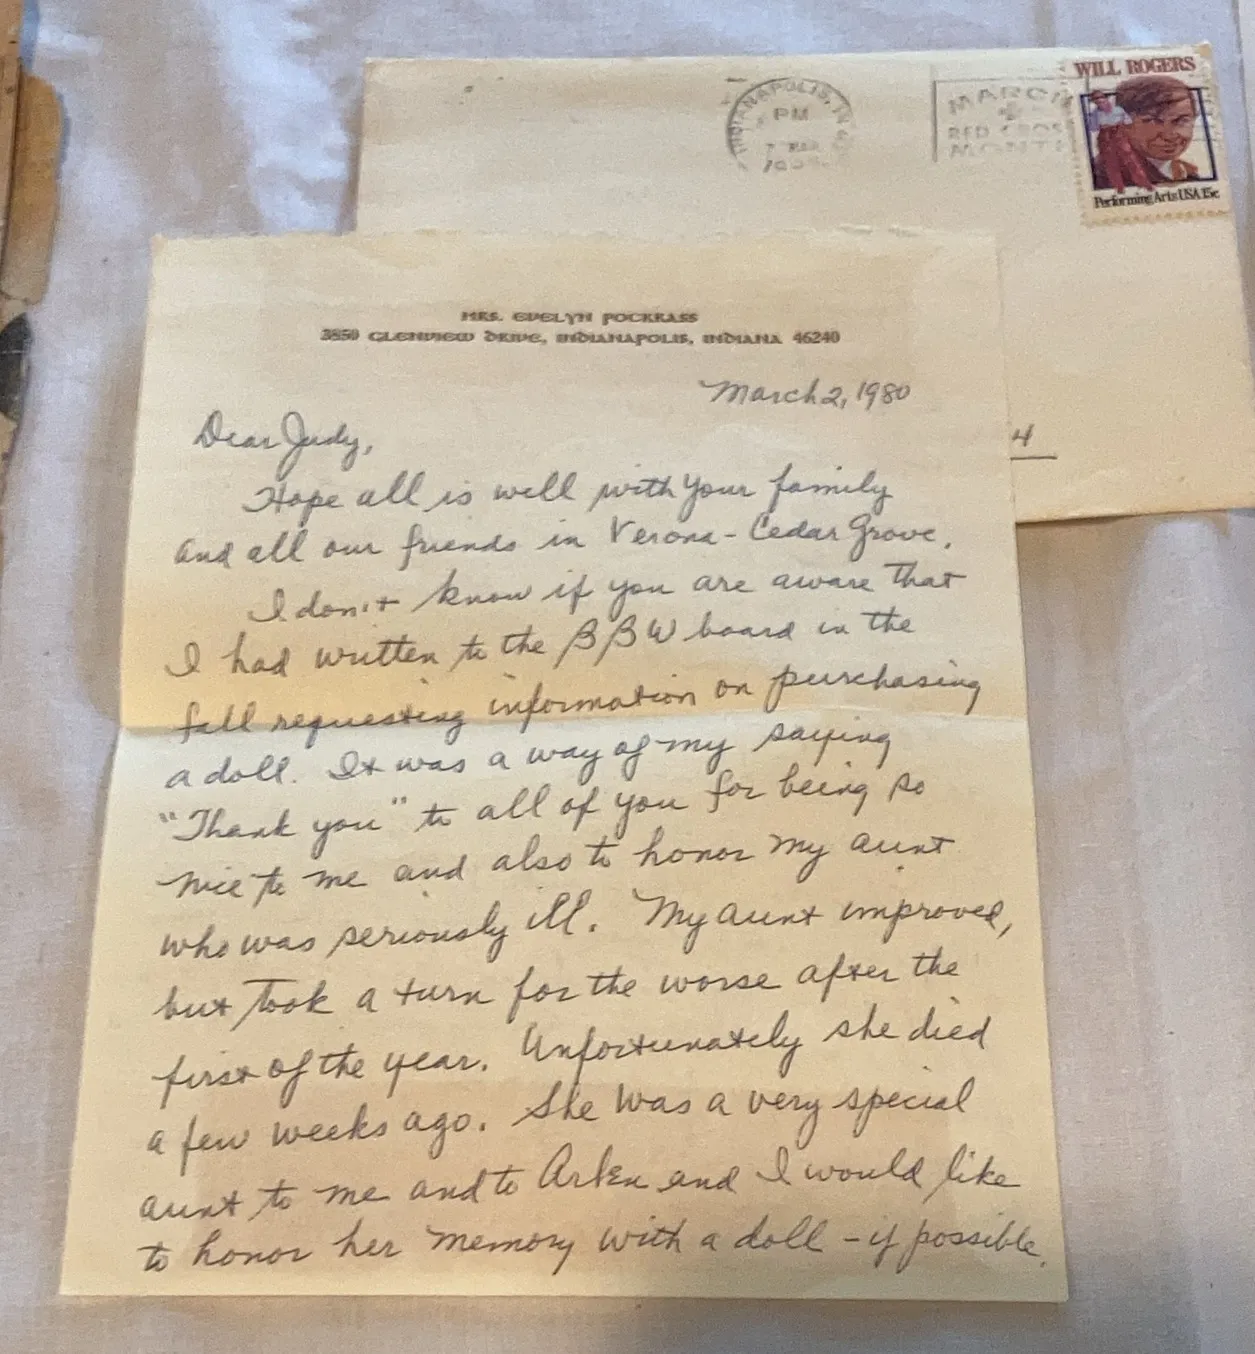 WILL ROGERS
INDIANAPOLIS, IN
PM
MAR
MARCH
RED CROSS
MONTH
Performing Arts USA 15c
MRS. EVELYN POCKRASS
3850 GLENVIEW DRIVE, INDIANAPOLIS, INDIANA 46240
March 2, 1980
Dear Judy,
Hope all is well with your family
and all our friends in Verona-Cedar Grove.
I don't know if you are aware that
I had written to the BBW board in the
fall requesting information on purchasing
a doll. It was a way of my saying
"Thank you" to all of you for being so
nice to me and also to honor my aunt
who was seriously ill. My aunt improved,
but took a turn for the worse after the
first of the year. Unfortunately she died
a few weeks ago. She was a very special
aunt to me and to Arlen and I would like
to honor her memory with a doll - if possible.
4